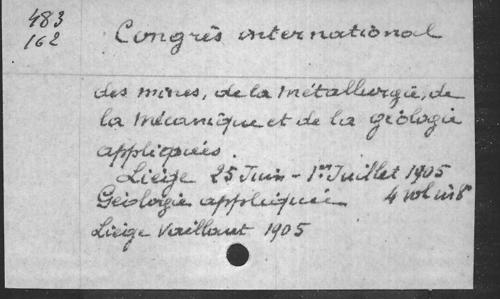 483
162
Congrès international
des mines, de la métallurgie, de
la mécanique et de la géologie
appliquées.
Liège 25 Juin - 1er Juillet 1905
Géologie appliquée 4 vol in 8°
Liège Vaillant 1905